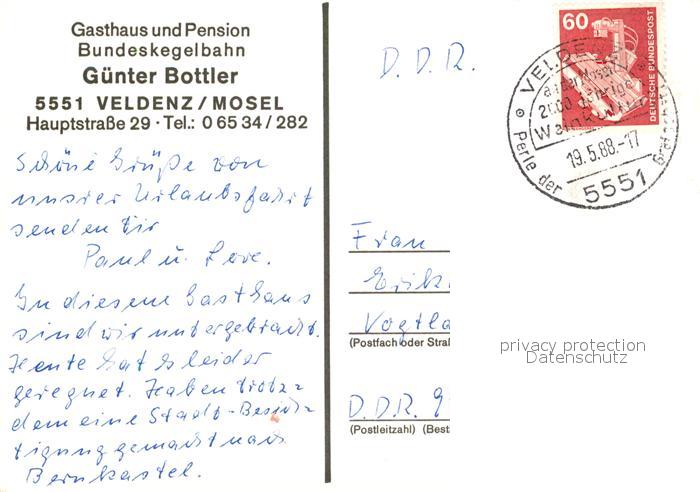 Gasthaus und Pension
Bundeskegelbahn
Günter Bottler
5551 VELDENZ / MOSEL
Hauptstraße 29 · Tel.: 0 65 34 / 282
Schöne Grüße von
unsrer Urlaubsfahrt
senden Dir
Paul u.
In diesem Gasthaus
sind wir untergebracht.
Heute hat es leider
geregnet. Haben trotz-
dem eine Stadt-Besich-
tigung gemacht nach
Bernkastel.
D. D. R.
60
DEUTSCHE BUNDESPOST
VELDENZ
an der Mosel
2000 jährige
19.5.88.-17
5551
Perle der Grafschaft
Frau
Erik
Vogtla
(Postfach oder Straß
privacy protection
Datenschutz
D.D.R. 9
(Postleitzahl) (Best